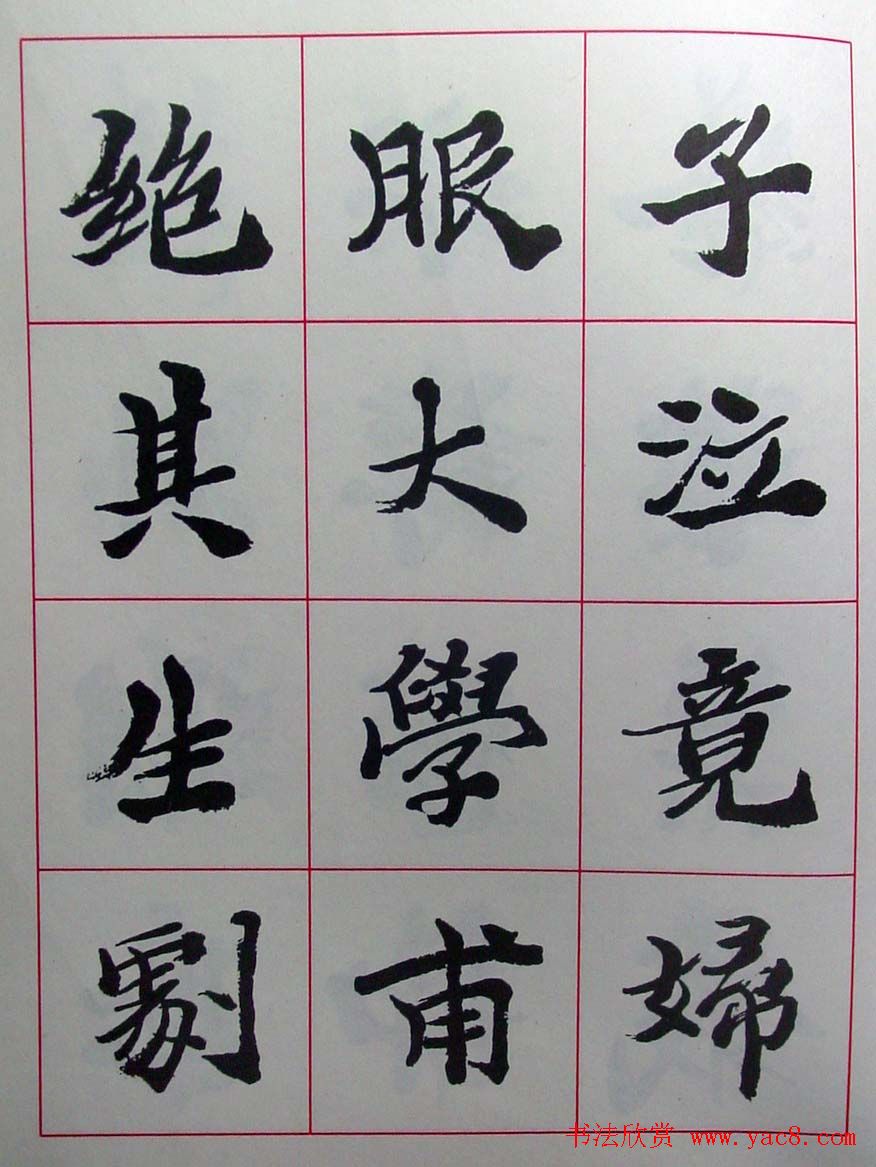 子泣竟婦
服大學甫
絕其生劇
书法欣赏 www.yac8.com